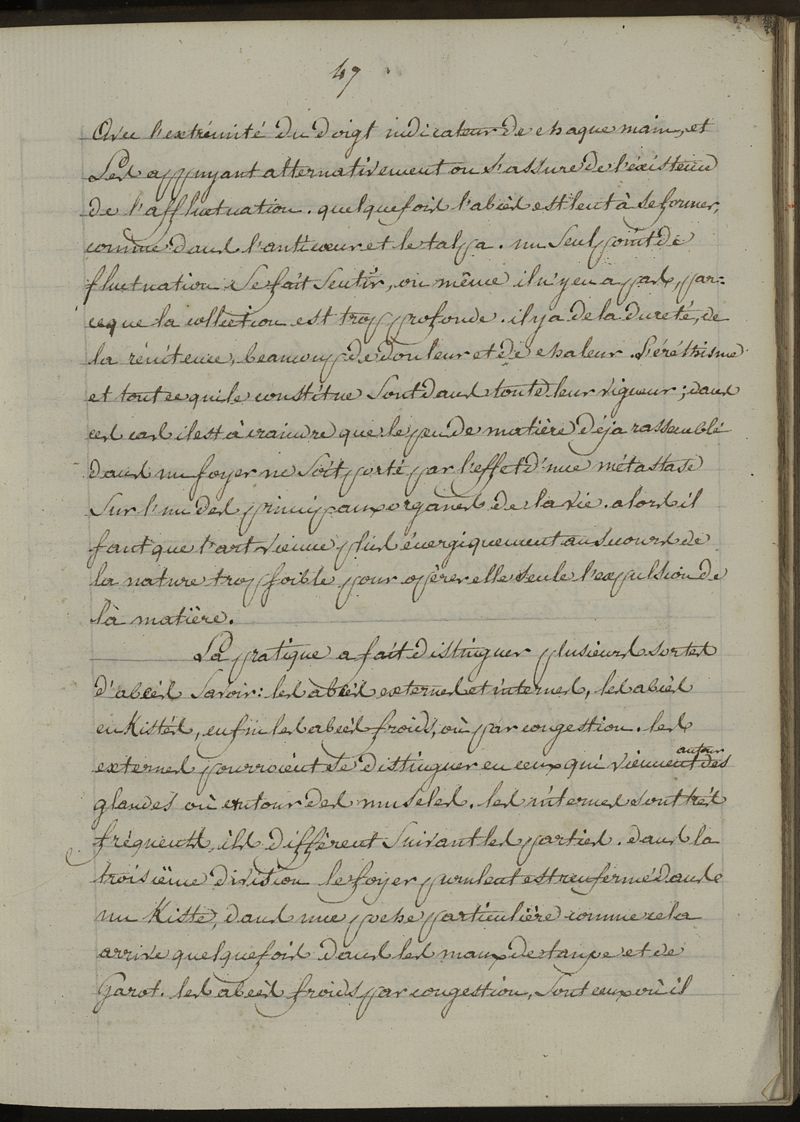 47
Avec l'extrémité du doigt indicateur de chaque main, et
les appuyant alternativement on s'assure de l'éxistence
de l'affluctuation. quelquefois l'abcès est lent à se former,
comme dans l'anticœur et le talpa. un seul point de
fluctuation se fait sentir, ou même il n'y en a pas, par=
ceque la collection est trop profonde. il y a de la dureté, de
la rénitence, beaucoup de douleur et de chaleur. L'éréthisme
et tout ce qui le constitue sont dans toute leur vigueur; dans
ces cas il est à craindre que le peu de matière déja rassemblé
dans un foyer ne soit porté par l'effet d'une métastase
sur l'un des principaux organes de la vie. alors il
faut que l'art vienne plus énergiquement au secours de
la nature trop foible pour opèrer elle seule l'expulsion de
la matière.
La pratique a fait distinguer plusieurs sortes
d'abcès savoir: les abcès externes et internes, les abcès
en Kistés, enfin les abcès froids, où par congestion. les
externes pourroient se distinguer en ceux qui viennent autour des
glandes où entour des muscles. les internes sont très
fréquents, ils diffèrent suivant les parties. dans la
troisième division le foyer purulent est renfermé dans
un Kiste, dans une poche particulière comme cela
arrive quelquefois dans les maux de taupe et de
Garot. les abcès froids par congestion, sont ceux où il